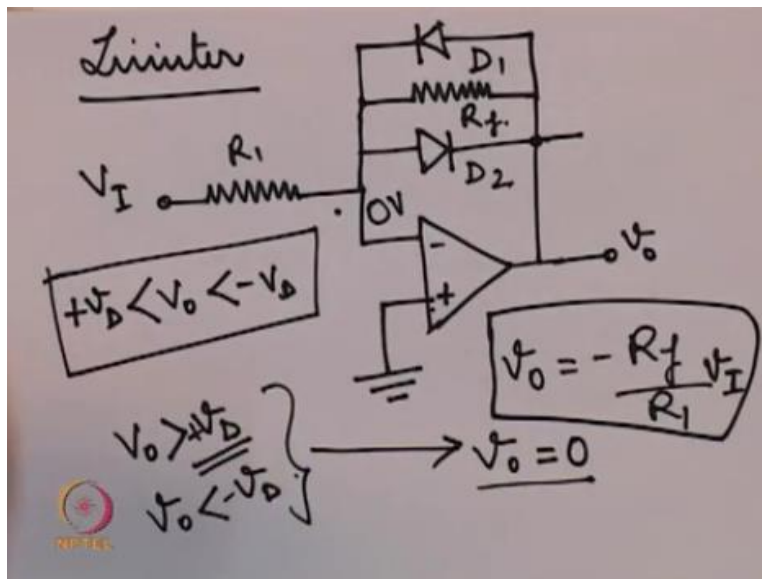 Limiter
D1
Rf.
R1
D2
VI
0V
-
+
vo
+vD < vo < -vD
vo = - Rf/R1 vI
vo > +vD
vo < -vD
vo = 0
NPTEL